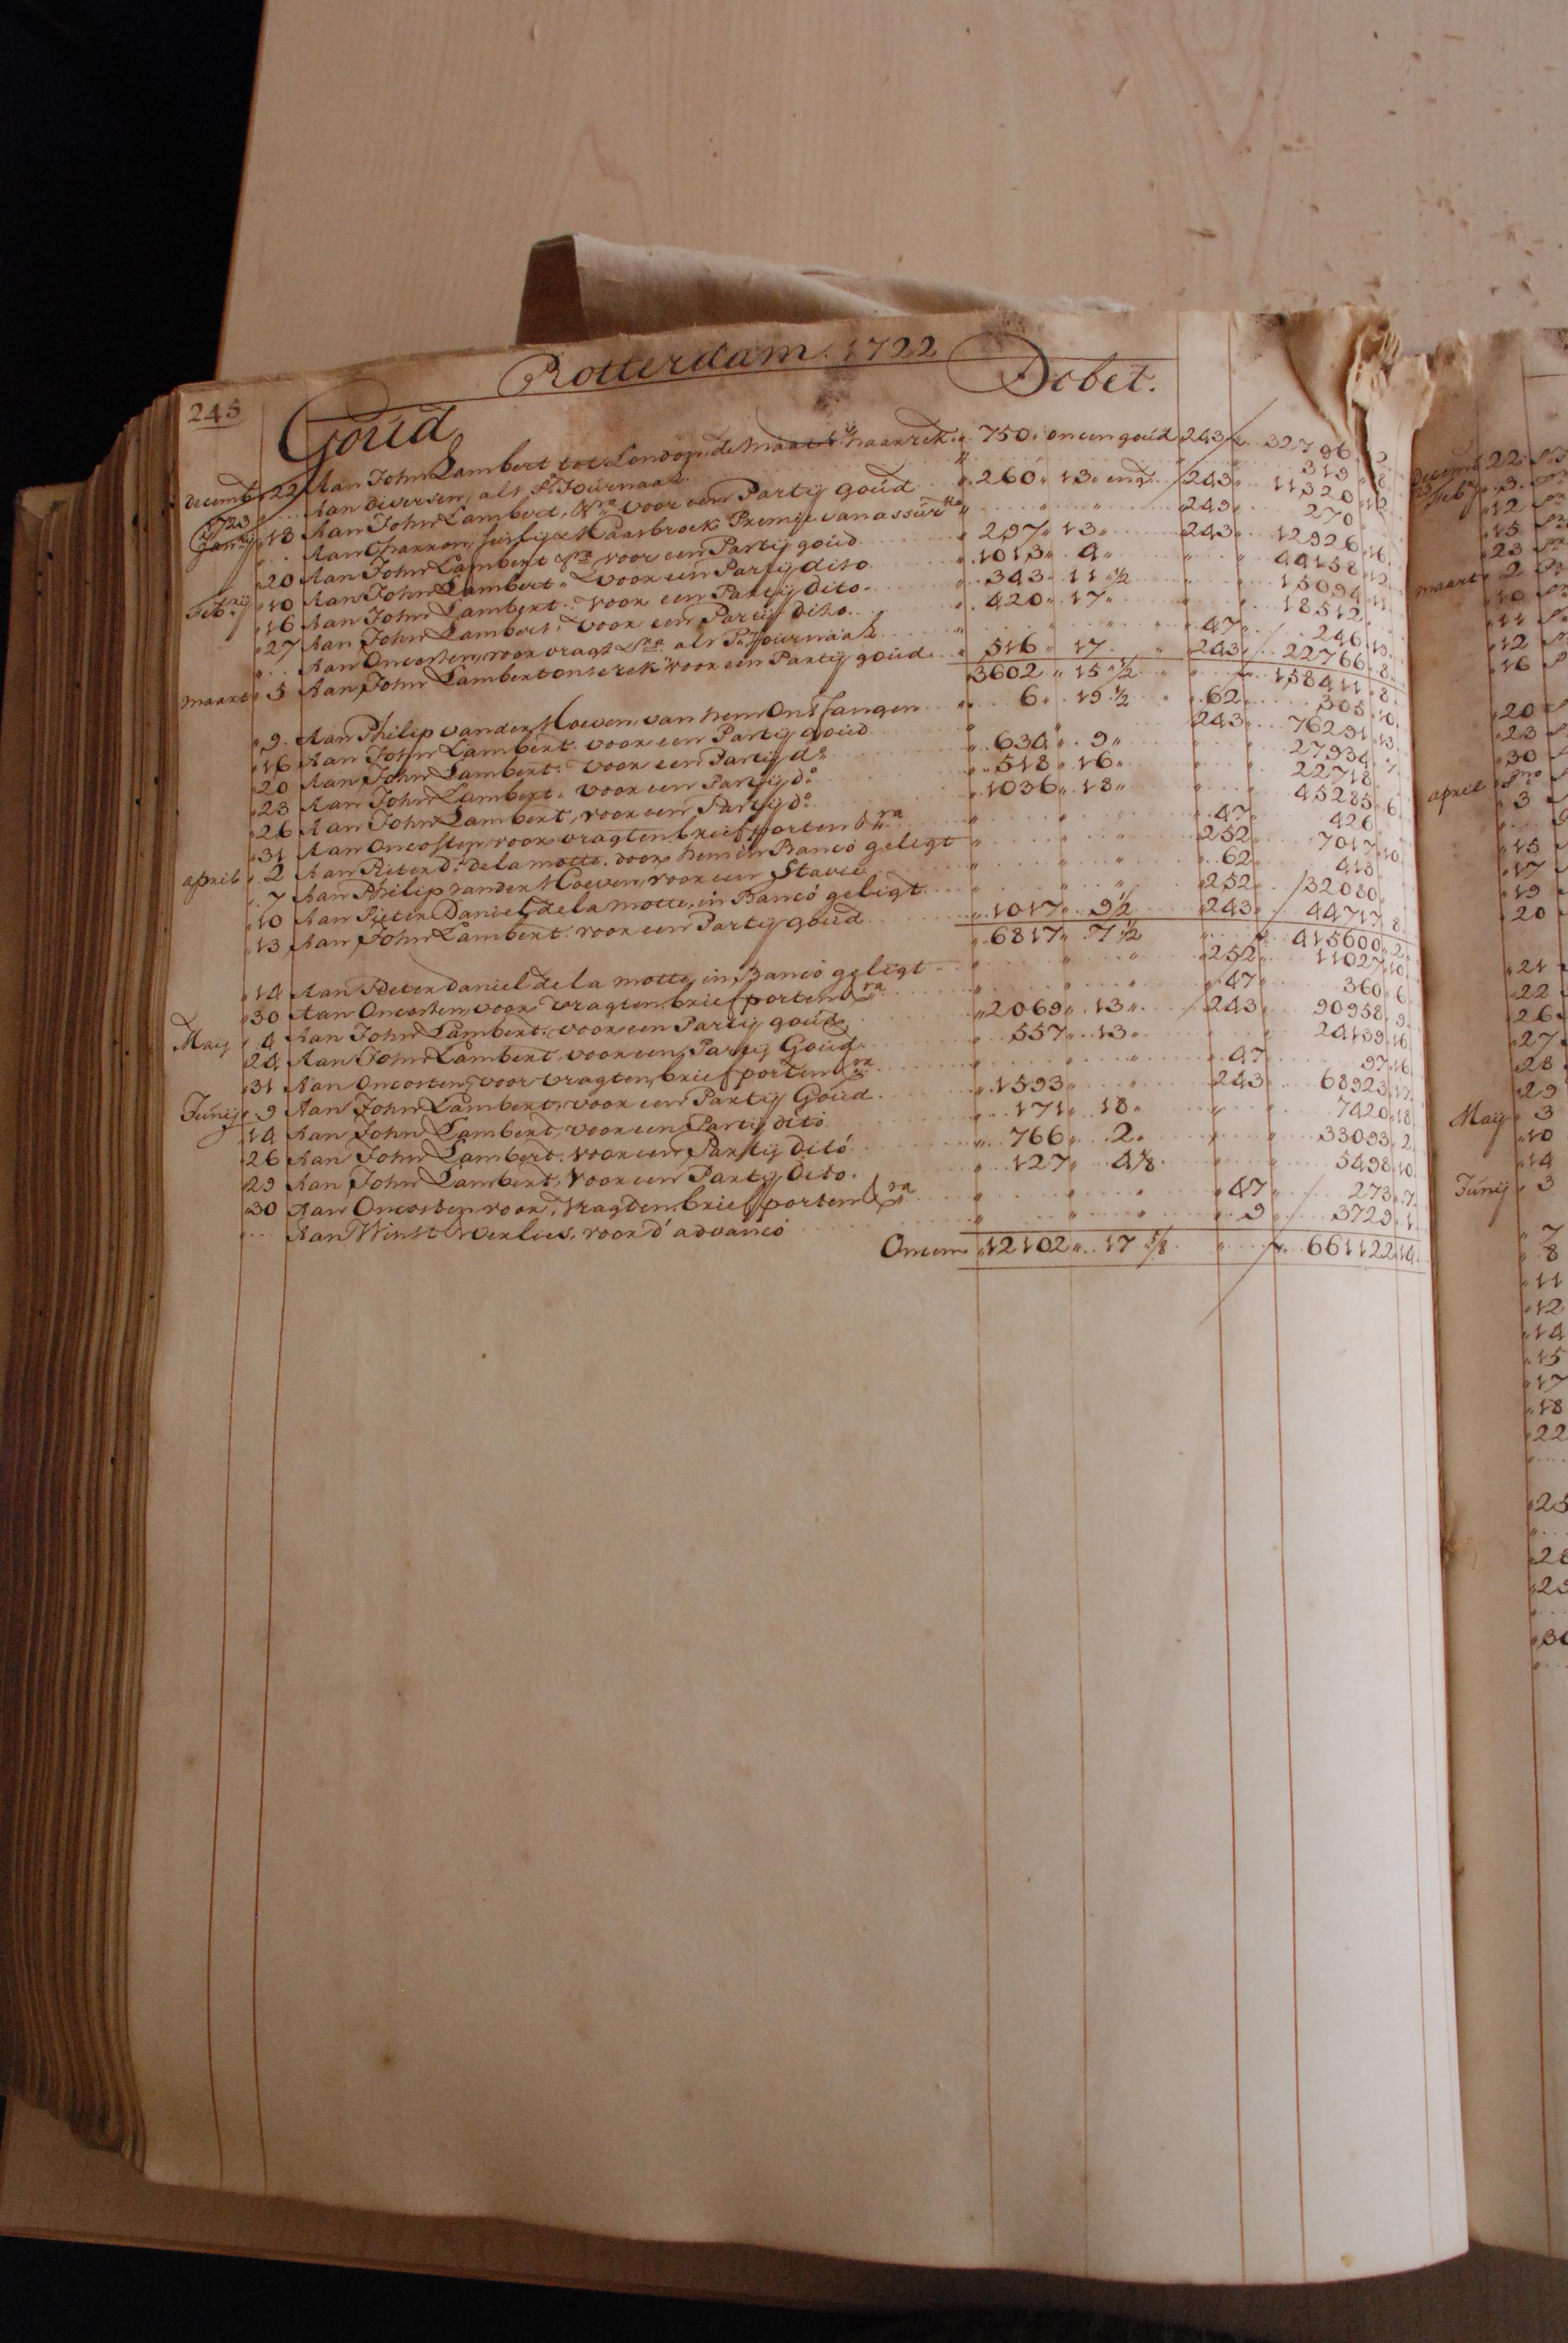 Rotterdam. 1722
245
Goud Debet.
decemb 22 Aan John Lambert tot London, de maart naar rek. 750. oncen goud 243 32796
Aan diversen, als Pr. Journaal 319 8
1723 Janrij 18 Aan John Lambert, voor een Partij goud 260 13 eng 243 11320 12
Aan Charron, Maasbroek Premie van assur 243 270
20 Aan John Lambert voor een Partij goud 297 13 243 12926 16
Febrij 10 Aan John Lambert. voor een Partij dito 1013 4 44158 12
16 Aan John Lambert. voor een Partij dito. 343 11 1/2 15094 11
27 Aan John Lambert. voor een Partij dito. 420 17 18512
Aan Oncosten, voor vragt &ra als Pr. Journaal 47 246 13
maart 5 Aan John Lambert onse rek voor een Partij goud 516 17 243 22766 8
3602 15 1/2 158411 8
9 Aan Philip vander Hoeven, van hem Ontfangen 6 19 1/2 62 305 10
16 Aan John Lambert. voor een Partij goud 243 76291 13
20 Aan John Lambert. voor een Partij do 634 9 27934 7
23 Aan John Lambert. voor een Partij do 518 16 22718
26 Aan John Lambert, voor een Partij do 1036 18 45285 6
31 Aan Oncosten, voor vragten, briefporten &ra 47 426
april 2 Aan Pieter D. de la motte. door hem in Banco geligt 252 7017 10
7 Aan Philip vander Hoeven, voor een Stavie 62 413
10 Aan Pieter Daniel de la motte, in Banco geligt 252 32080
13 Aan John Lambert. voor een Partij goud 1017 9 1/2 243 44717 8
6817 7 1/2 415600 2
14 Aan Pieter Daniel de la motte, in Banco geligt 252 11027 10
30 Aan Oncosten, voor vragten, briefporten &ra 47 360 6
May 4 Aan John Lambert, voor een Partij goud 2069 13 243 90958 9
24 Aan John Lambert voor een Partij Goud 557 13 24139 16
31 Aan Oncosten, voor vragten, briefporten &ra 47 97 16
Junij 9 Aan John Lambert, voor een Partij Goud 1593 243 68923 12
14 Aan John Lambert, voor een Partij dito 171 18 7420 18
26 Aan John Lambert. voor een Partij dito 766 2 33093 2
29 Aan John Lambert, voor een Partij dito. 127 4 1/8 5498 10
30 Aan Oncosten voor, vragten, briefporten &ra 47 273 7
Aan Winst & verlies, voor d' advanco 9 3729 1
Oncen 12102 17 5/8 661122 14
decemb 22
Feb 3
12
15
23
maart 2
10
11
12
16
20
23
30
april pmo
3
15
17
19
20
21
22
26
27
28
29
May 3
10
14
Junij 3
7
8
11
12
14
15
17
18
22